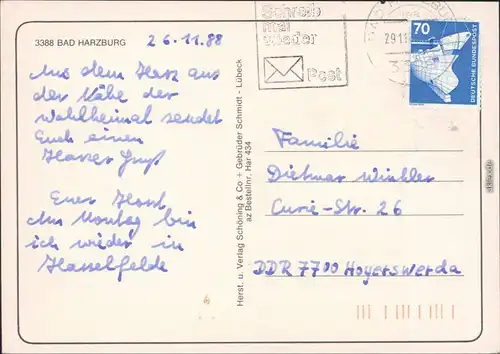 3388 BAD HARZBURG
26.11.88
Aus dem Harz aus
der Nähe der
Wahlheimat sendet
Euch einen
Harzer Gruß
Euer Horst
Am Montag bin
ich wieder in
Hasselfelde
Herst. u. Verlag Schöning & Co + Gebrüder Schmidt - Lübeck
az Bestellnr. Har 434
Schreib
mal
wieder
Post
29.11
70
DEUTSCHE BUNDESPOST
Familie
Dietmar Winkler
Curie-Str. 26
DDR 7700 Hoyerswerda